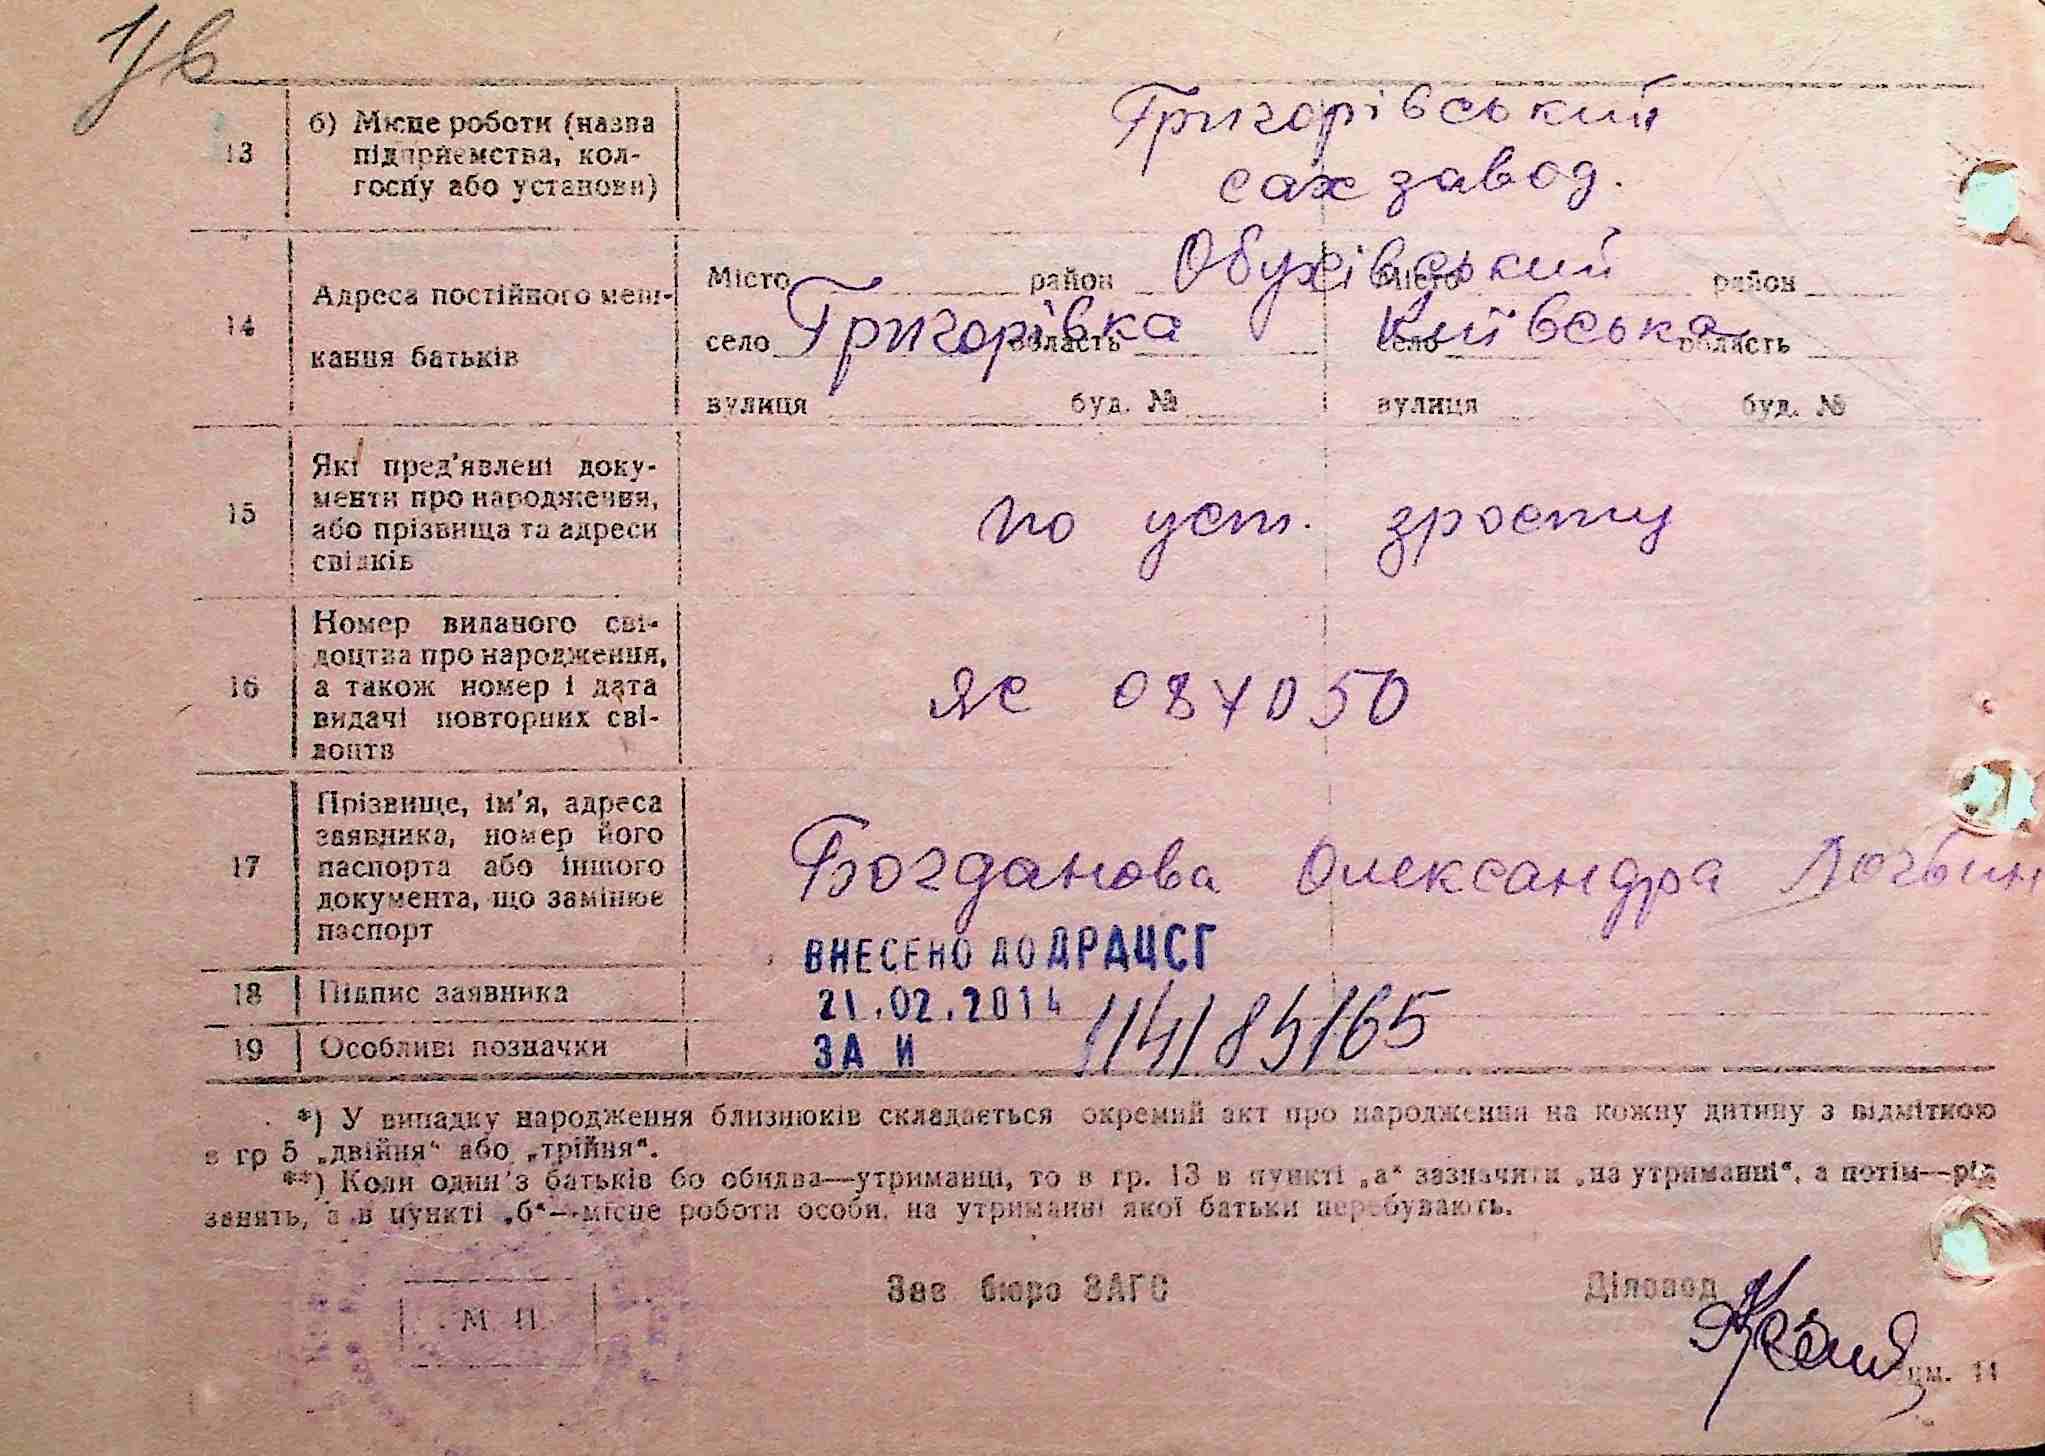 13 б) Місце роботи (назва підприємства, колгоспу або установи) Григорівський
сахзавод.
14 Адреса постійного мешкання батьків
Місто район Обухівський Місто район
село Григорівка область Київська село область
вулиця буд. № вулиця буд. №
15 Які пред'явлені документи про народження, або прізвища та адреси свідків по уст. зросту
16 Номер виданого свідоцтва про народження, а також номер і дата видачі повторних свідоцтв ЯС 087050
17 Прізвище, ім'я, адреса заявника, номер його паспорта або іншого документа, що замінює паспорт Богданова Олександра Логвин
ВНЕСЕНО ДО ДРАЦСГ
18 Підпис заявника 21.02.2014
19 Особливі позначки ЗА И
*) У випадку народження близнюків складається окремий акт про народження на кожну дитину з відміткою
в гр 5 „двійня" або „трійня".
**) Коли один з батьків бо обидва—утриманці, то в гр. 13 в пункті „а" зазначити „на утриманні", а потім—рід
занять, а в пункті „б"—місце роботи особи, на утриманні якої батьки перебувають.
М. П.
Зав бюро ЗАГС Діловод